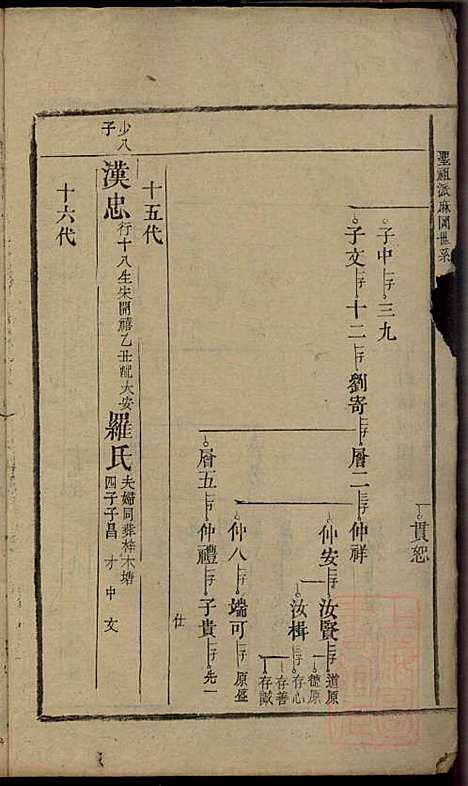 聖祖派麻園世系
貫恕
子中 子 三九
子文 子 十二 子 劉寄 子 層二 子 仲祥
仲安 子 汝賢 子 道原
德原
汝楫 子 存心
存善
存誠
仲八 子 端可 子 原盛
層五 子 仲禮 子 子貴 子 先一
仕
十五代
少八子
漢忠 行十八生宋開禧乙丑配大安 羅氏 夫婦同葬梓木塘
四子子昌 才 中 文
十六代